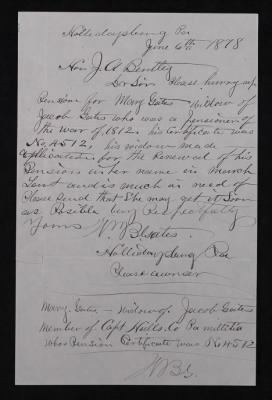 Hollidaysburg Pa
June 6th 1878
Hon J. A. Bentley
Dr Sir Please hurry up
Pension for Mary Gates widow of
Jacob Gates who was a pensioner of
the war of 1812, his Certificate was
No. 4512, his widow made
application for the renewal of his
Pension in her name in March
Last and is much in need of
Please send that she may get it soon
as Possible very Respectfully
Yours
Gates.
Hollidaysburg Pa
Please answer
Mary Gates widow of Jacob Gates
member of Capt Hulls Co Pa militia
whos Pension Certificate was No 4512